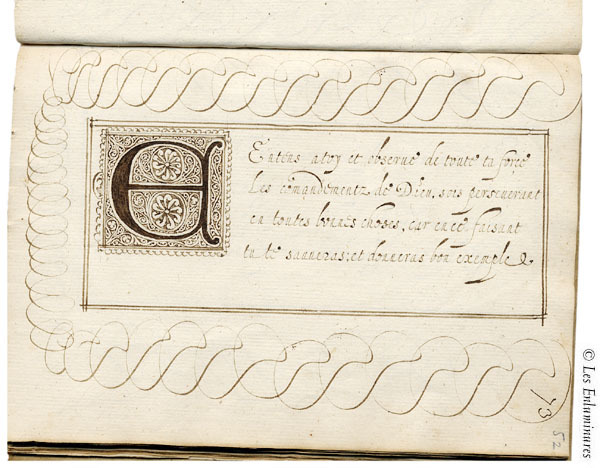 E
Entens a toy et obserue de toute ta force
Les comandementz de Dieu, sois perseuerant
en toutes bonnes choses, car en ce faisant
tu te sauueras; et donneras bon exemple &.
13
52
© Les Enluminures